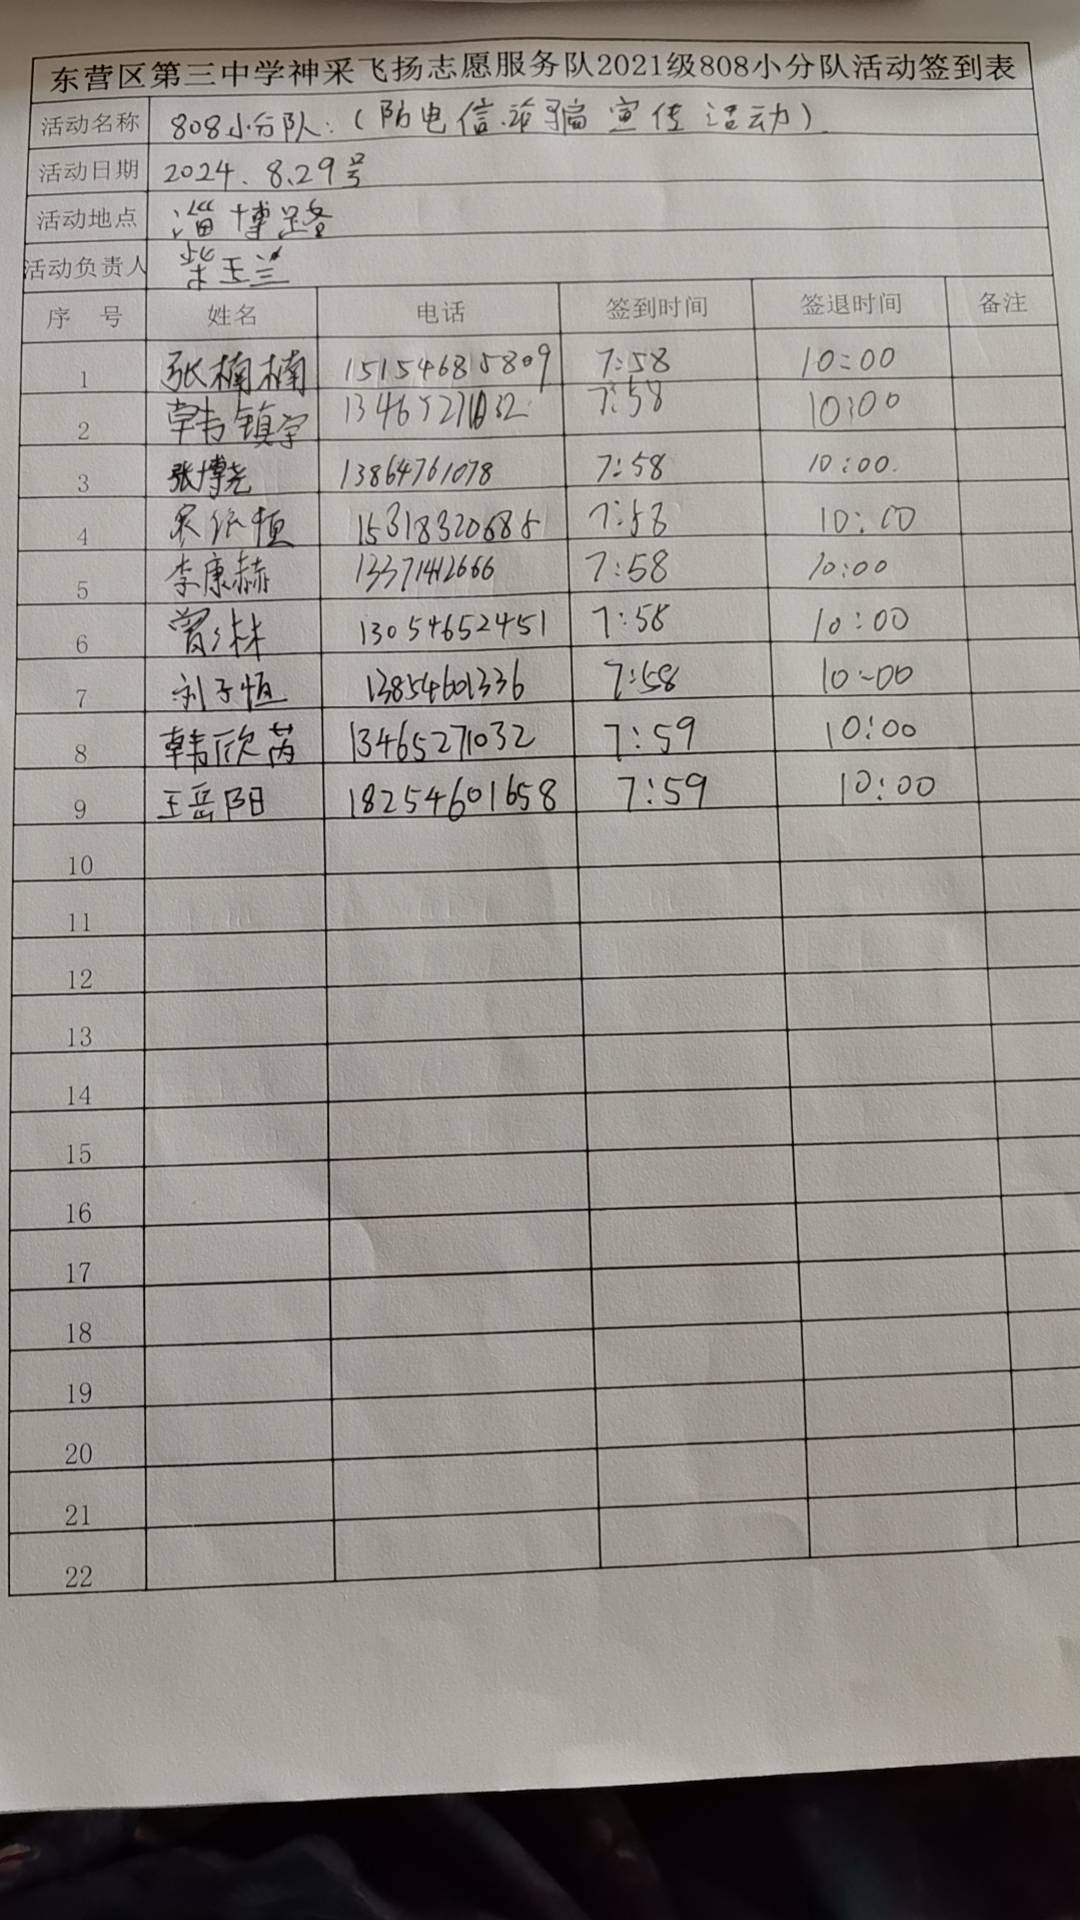 东营区第三中学神采飞扬志愿服务队2021级808小分队活动签到表
活动名称 808小分队:(防电信诈骗宣传活动)
活动日期 2024.8.29号
活动地点 淄博路
活动负责人 柴玉兰
序号 姓名 电话 签到时间 签退时间 备注
1 张楠楠 15154685809 7:58 10:00
2 韩镇宇 13465271032 7:58 10:00
3 张博尧 13864761078 7:58 10:00.
4 15318320685 7:58 10:00
5 李康赫 13371412666 7:58 10:00
6 13054652451 7:58 10:00
7 刘子恒 13854601336 7:58 10-00
8 韩欣芮 13465271032 7:59 10:00
9 王岳阳 18254601658 7:59 10:00
10
11
12
13
14
15
16
17
18
19
20
21
22